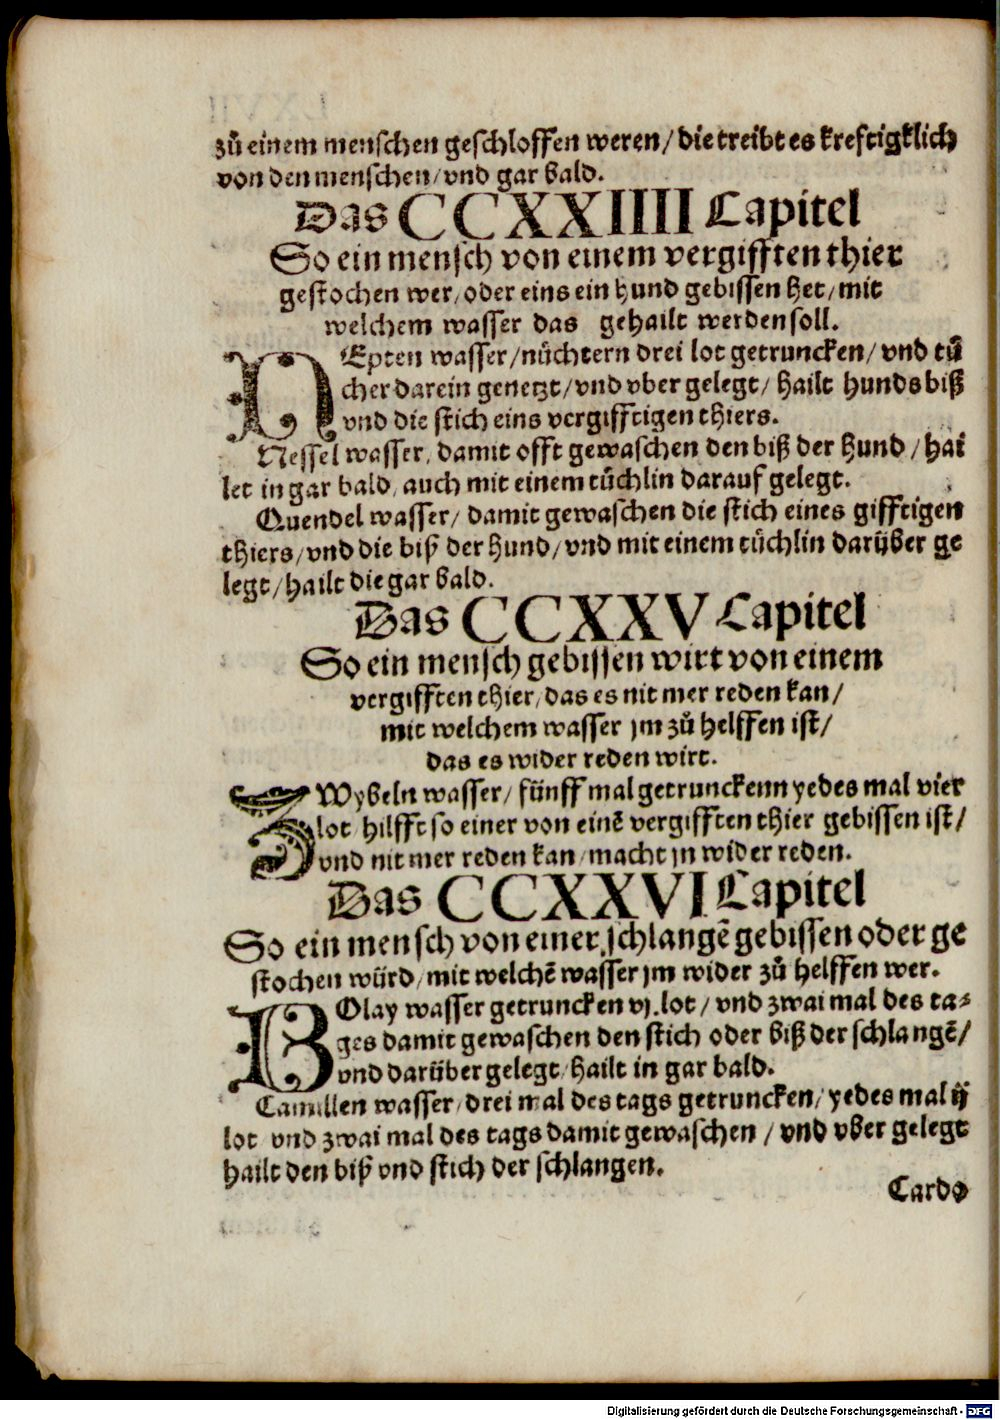 zů einem menschen geschloffen weren/ die treibt es kreftigklich
von den menschen/ vnd gar bald.
Das CCXXIIII Capitel
So ein mensch von einem vergifften thier
gestochen wer/ oder eins ein hund gebissen het/ mit
welchem wasser das gehailt werden soll.
NEpten wasser/ nüchtern drei lot getruncken/ vnd tů
cher darein genetzt/ vnd vber gelegt/ hailt hunds biß
vnd die stich eins vergifftigen thiers.
Nessel wasser/ damit offt gewaschen den biß der Hund/ hai
let in gar bald/ auch mit einem tůchlin darauf gelegt.
Quendel wasser/ damit gewaschen die stich eines gifftigen
thiers/ vnd die biß der Hund/ vnd mit einem tůchlin darüber ge
legt/ hailt die gar bald.
Das CCXXV Capitel
So ein mensch gebissen wirt von einem
vergifften thier/ das es nit mer reden kan/
mit welchem wasser jm zů helffen ist/
das es wider reden wirt.
ZWybeln wasser/ fünff mal getrunckenn yedes mal vier
lot/ hilfft so einer von einē vergifften thier gebissen ist/
vnd nit mer reden kan/ macht jn wider reden.
Das CCXXVI Capitel
So ein mensch von einer schlangē gebissen oder ge
stochen würd/ mit welchē wasser jm wider zů helffen wer.
BOlay wasser getruncken vj. lot/ vnd zwai mal des ta⸗
ges damit gewaschen den stich oder biß der schlangē/
vnd darüber gelegt/ hailt in gar bald.
Camillen wasser/ drei mal des tags getruncken/ yedes mal ij
lot vnd zwai mal des tags damit gewaschen/ vnd vber gelegt
hailt den biß vnd stich der schlangen.
Cardo
Digitalisierung gefördert durch die Deutsche Forschungsgemeinschaft - DFG